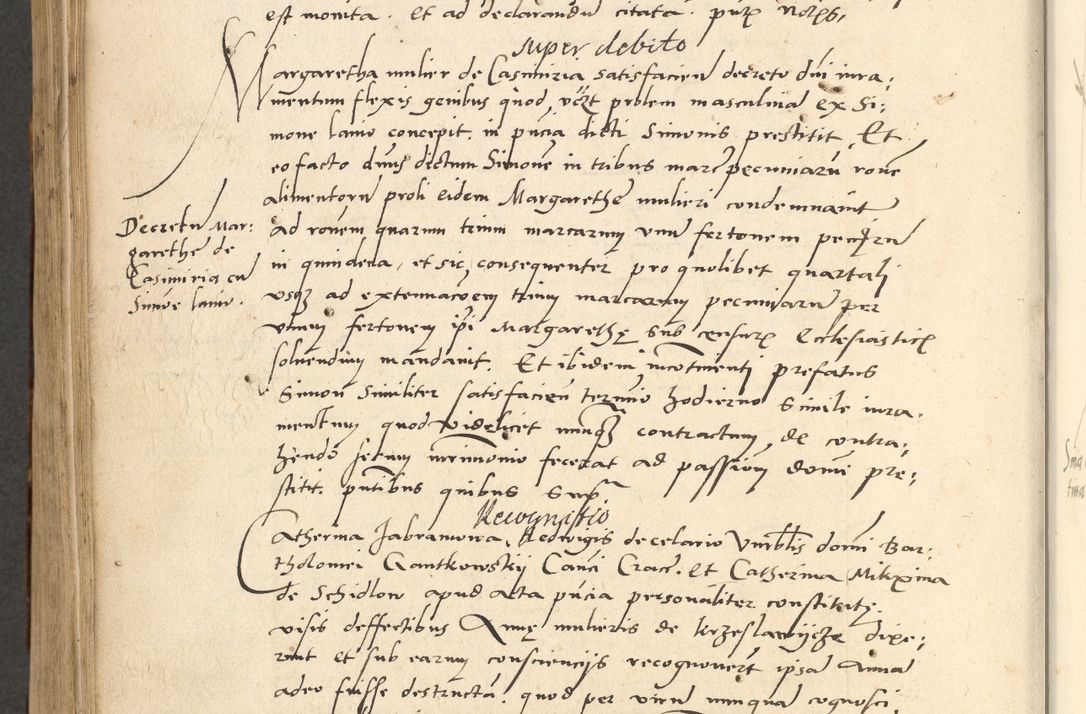 est monita. Et ad declarandū citata. pntꝫ Notꝫs.
super debito
Margaretha mulier de Casimiria satisfacieñ decreto dni iura,
mentum flexis genibus quod, vꝫt prolem masculinā ex Si:
mone lanio concepit, in pñcia dicti Simonis prestitit, Et
eo facto dñus dictum Simonē in tribus marꝭ pecuniarū roñe
alimentorū proli eidem Margarethe mulieri condemnavit
ad roñem quarum trium marcarum vnū fertonem pecũrū
in quindena, et sic consequenter pro quolibet quartali
vsqꝫ ad extenuacoem trium marcarum pecuniarū per
vnum fertonem ipi Margarethę sub censurꝭ Ecclesiasticꝭ
soluendum mandavit. Et ibidem incontinenti prefatus
Simoñ similiter satisfacieñ termīo hodierno simile iura,
mentum quod videlicet nunqꝫ contractum, de contra,
hendo secum mrimonio fecerat ad passioñ domī pre,
stitit. pñtibus quibus supra
Decretū Mar:
garethe de
Casimiria cū
Simōe lanio.
Recognitio
Catherina Jabramowa, Hedwigis de celario Venblis domī Bar:
tholomei Gantkowskij Canci Cracꝫ. et Catherina Mikxina
de Schidlow apud acta pñcia personaliter constitutę.
visis deffectibus Annę mulieris de Krzeslawijcze dixe,
runt et sub earum consciencijs recognouert ipsā Annā
adeo fuisse destructā. quod per virū nunquā cognosci